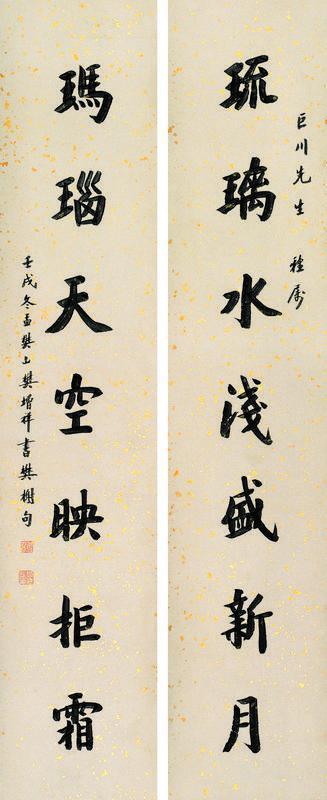 巨川先生 雅属
琉璃水淺盛新月
瑪瑙天空映拒霜
壬戌冬孟樊山樊增祥書樊榭句